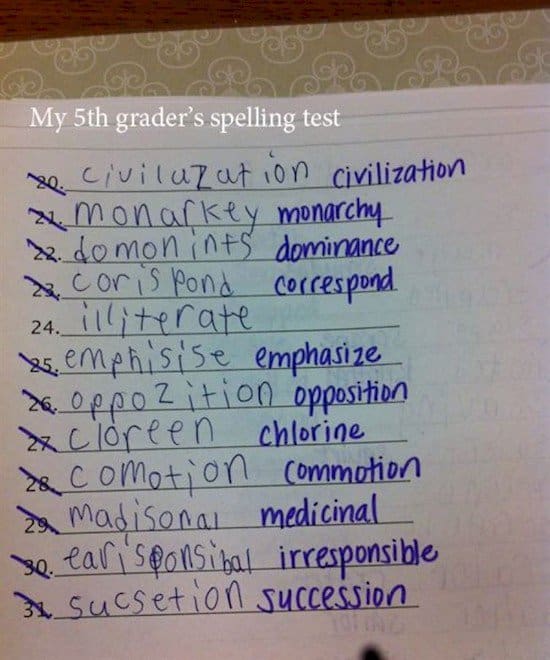 My 5th grader's spelling test
20. civilazation civilization
21. monarkey monarchy
22. domonints dominance
23. corispond correspond
24. illiterate
25. emphisise emphasize
26. oppozition opposition
27. cloreen chlorine
28. comotion commotion
29. madisonal medicinal
30. earisponsibal irresponsible
31. sucsetion succession